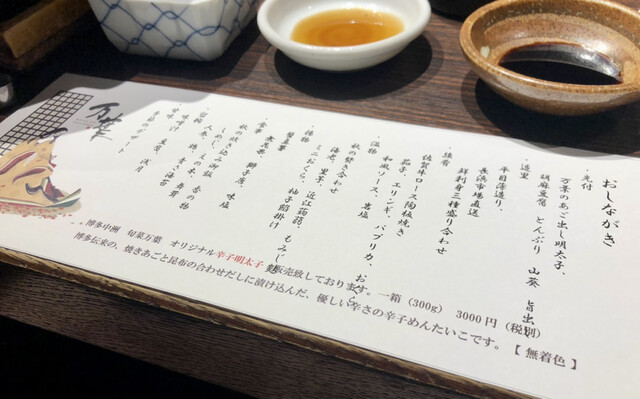 おしながき
・先付
万葉のあご出し明太子、
胡麻豆腐 とんぶり 山葵 旨出し
・造里
平目薄造り、
長浜市場直送
鮮刺身三種盛り合わせ
・焼肴
佐賀牛ロース陶板焼き
茄子、エリンギ、パプリカ、おくら
和風ソース、岩塩
・温物
秋の焚き合わせ
海老、里芋、近江蒟蒻、もみじ麩
いんげん、柚子餡掛け
・揚物
蟹真薯
獅子唐、味塩
・食事
秋の炊き込み御飯
しめじ、舞茸
・留椀
・甘味
季節のデザート
万葉
博多中洲 旬菜万葉 オリジナル辛子明太子 販売致しております。一箱(300g) 3000円(税別)
博多伝来の、焼きあごと昆布の合わせだしに漬け込んだ、優しい辛さの辛子めんたいこです。【 無着色 】